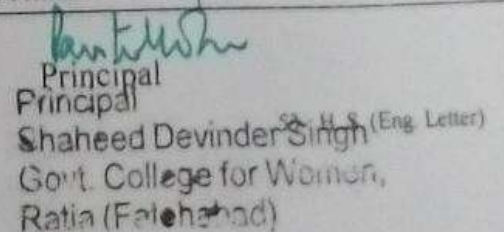 Principal
Principal
Shaheed Devinder Singh (Eng. Letter)
Govt. College for Women,
Ratia (Fatehabad)